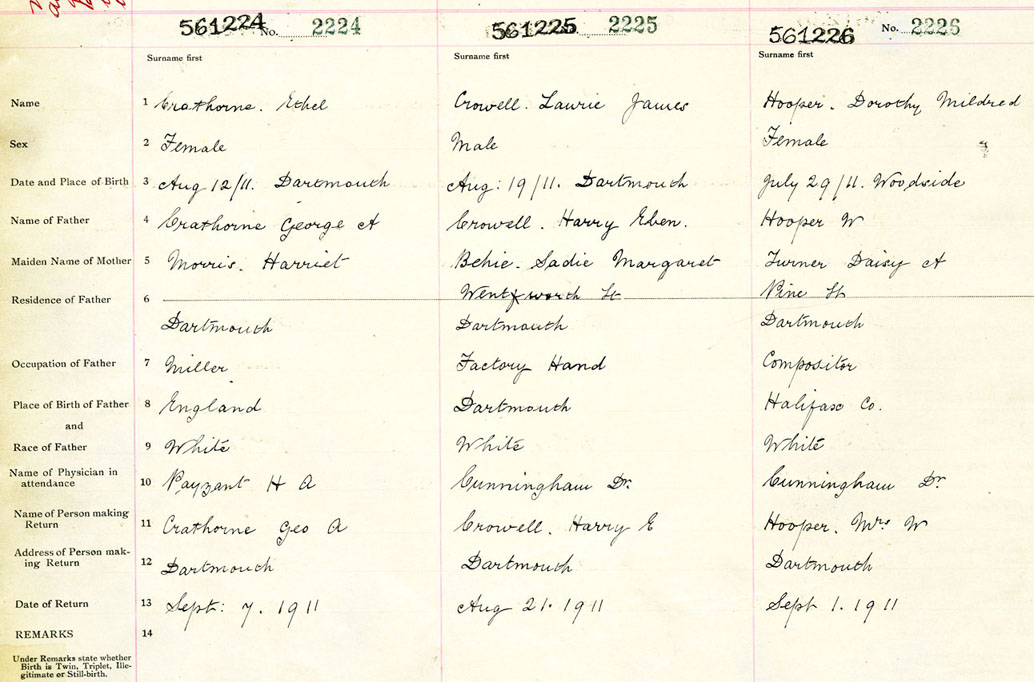 561224 No. 2224 561225 2225 561226 No. 2226
Surname first Surname first Surname first
Name 1 Crathorne. Ethel Crowell. Laurie James Hooper. Dorothy Mildred
Sex 2 Female Male Female
Date and Place of Birth 3 Aug 12/11. Dartmouth Aug: 19/11. Dartmouth July 29/11. Woodside
Name of Father 4 Crathorne George A Crowell. Harry Eben. Hooper W
Maiden Name of Mother 5 Morris. Harriet Behie. Sadie Margaret Turner Daisy A
Residence of Father 6 Wentworth St Pine St
Dartmouth Dartmouth Dartmouth
Occupation of Father 7 Miller Factory Hand Compositor
Place of Birth of Father 8 England Dartmouth Halifax Co.
and
Race of Father 9 White White White
Name of Physician in
attendance 10 Payzant H A Cunningham Dr. Cunningham Dr.
Name of Person making
Return 11 Crathorne Geo A Crowell. Harry E Hooper. Mrs W
Address of Person mak-
ing Return 12 Dartmouth Dartmouth Dartmouth
Date of Return 13 Sept: 7. 1911 Aug 21. 1911 Sept 1. 1911
REMARKS 14
Under Remarks state whether
Birth is Twin, Triplet, Ille-
gitimate or Still-birth.